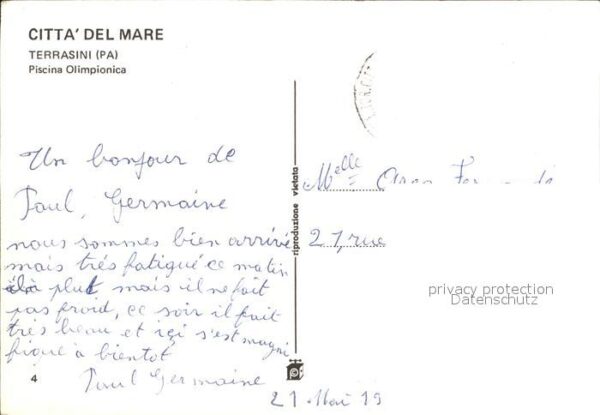 CITTA' DEL MARE
TERRASINI (PA)
Piscina Olimpionica
Un bonjour de
Paul, Germaine
nous sommes bien arrivé
mais trés fatigué ce matin
plut mais il ne fait
pas froid, ce soir il fait
trés beau et içi s'est magni
fique à bientot
Paul Germaine
21 Mai 19
4
riproduzione vietata
Melle
21, rue
privacy protection
Datenschutz